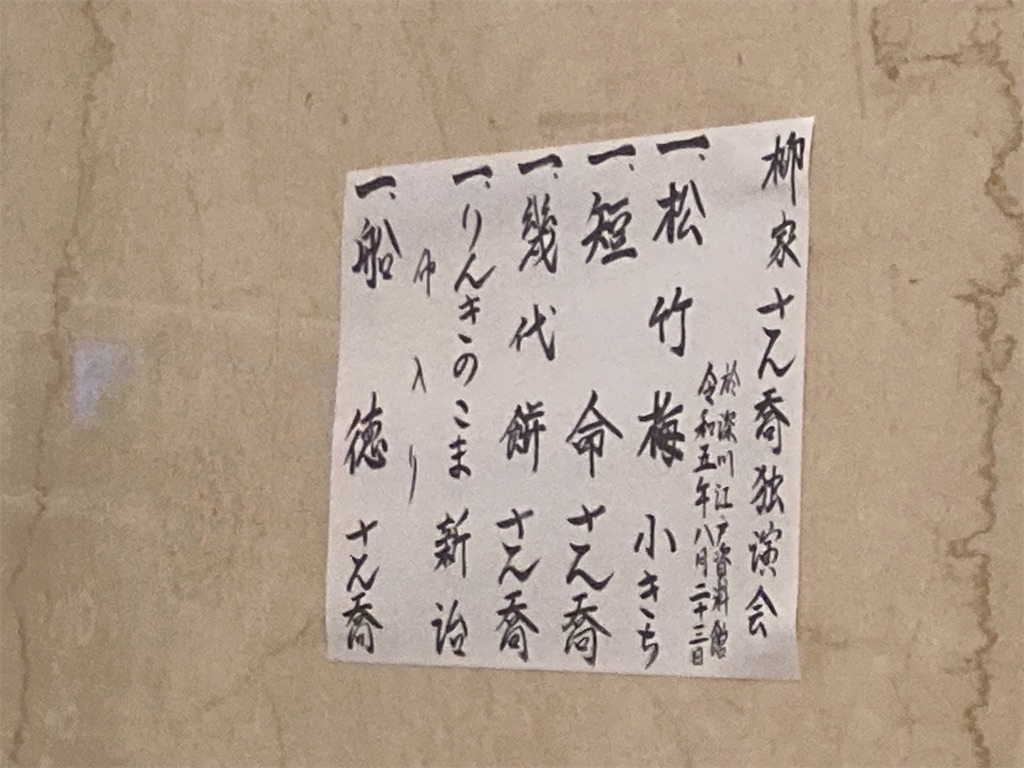 柳家さん喬独演会
於深川江戸資料館
令和五年八月二十三日
一、松竹梅 小きち
一、短命 さん喬
一、幾代餅 さん喬
一、りんきのこま 新治
仲入り
一、船徳 さん喬